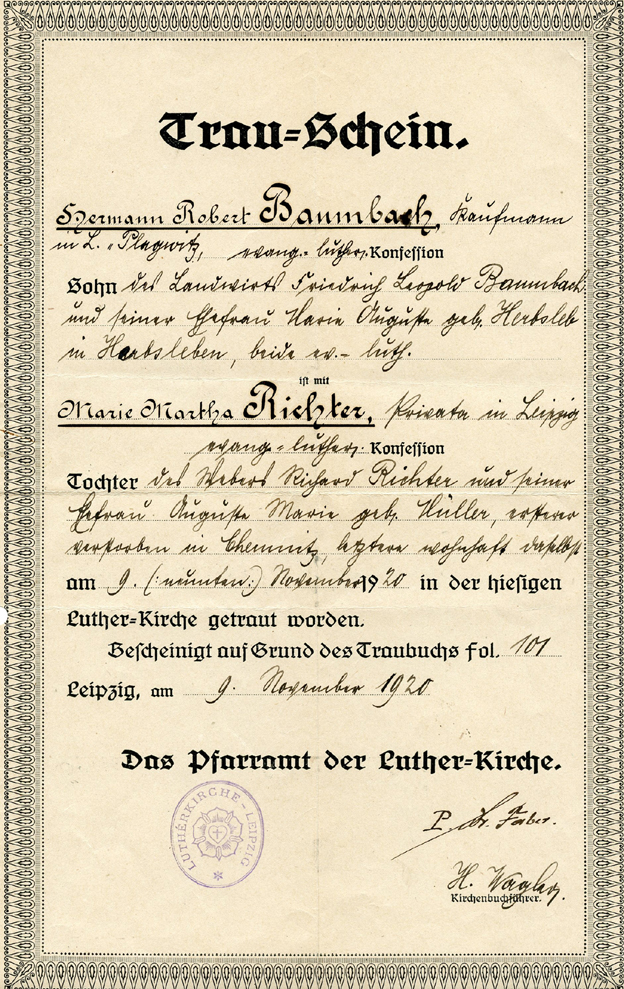 Trau=Schein.
Hermann Robert Baumbach, Kaufmann
in L.=Plagwitz, evang.=luther. Konfession
Sohn des Landwirts Friedrich Leopold Baumbach
und seiner Ehefrau Marie Auguste geb. Herbsleb
in Herbsleben, beide ev.-luth.
ist mit
Marie Martha Richter, Privata in Leipzig
evang.=luther. Konfession
Tochter des Webers Richard Richter und seiner
Ehefrau Auguste Marie geb. Müller, ersterer
verstorben in Chemnitz, letztere wohnhaft daselbst
am 9. (:neunten:) November 1920 in der hiesigen
Luther=Kirche getraut worden.
Bescheinigt auf Grund des Traubuchs fol. 101
Leipzig, am 9. November 1920
Das Pfarramt der Luther=Kirche.
LUTHERKIRCHE - LEIPZIG
P. Dr. Faber.
H. Wagler.
Kirchenbuchführer.